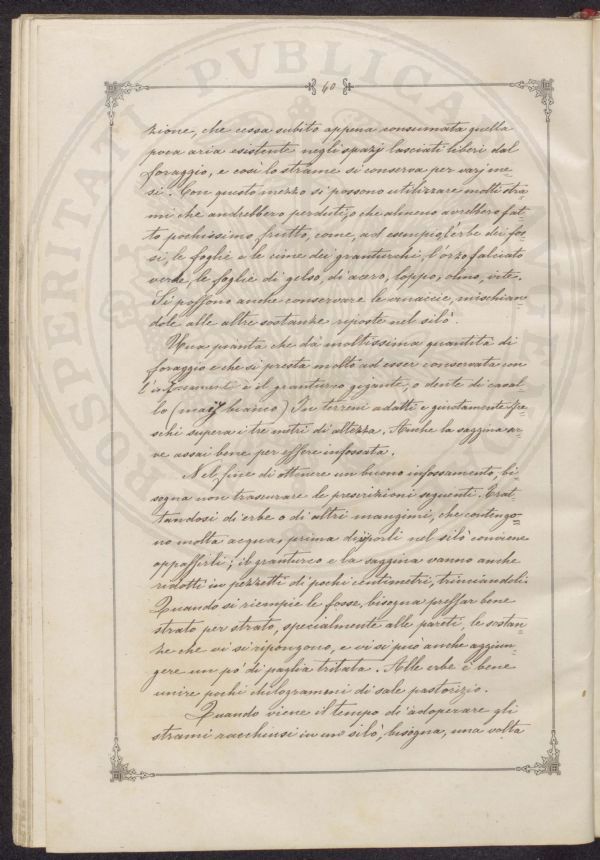 PROSPERITATI PVBLICAE AVGENDAE
60.
zione, che cessa subito appena consumata quella
poca aria esistente negli spazj lasciati liberi dal
foraggio, e così lo strame si conserva per varj me=
si. Con questo mezzo si possono utilizzare molti stra=
mi che andrebbero perduti, o che almeno avrebbero fat=
to pochissimo frutto, come, ad esempio, l'erbe dei fos=
si, le foglie e le cime dei granturchi, l'orzo falciato
verde, le foglie di gelso, di acero, loppo, olmo, vite.
Si possono anche conservare le vinaccie, mischian=
dole alle altre sostanze riposte nel silò.
Una pianta che dà moltissima quantità di
foraggio e che si presta molto ad esser conservata con
l'infossamento è il granturco gigante, o dente di caval=
lo (maiz bianco) In terreni adatti e giustamente fre=
schi supera i tre metri di altezza. Anche la saggina ser=
ve assai bene per essere infossata.
Nel fine di ottenere un buono infossamento, bi=
sogna non trascurare le prescrizioni seguenti. Trat=
tandosi di erbe o di altri mangimi, che contengo=
no molta acqua, prima disporli nel silò conviene
appassirli; il granturco e la saggina vanno anche
ridotti in pezzetti di pochi centimetri, trinciandoli
Quando si riempie le fosse, bisogna pressar bene
strato per strato, specialmente alle pareti, le sostan=
ze che vi si ripongono, e vi si può anche aggiun=
gere un pò di paglia tritata. Alle erbe è bene
unire pochi chilogrammi di sale pastorizio.
Quando viene il tempo di adoperare gli
strami racchiusi in uno silò, bisogna, una volta